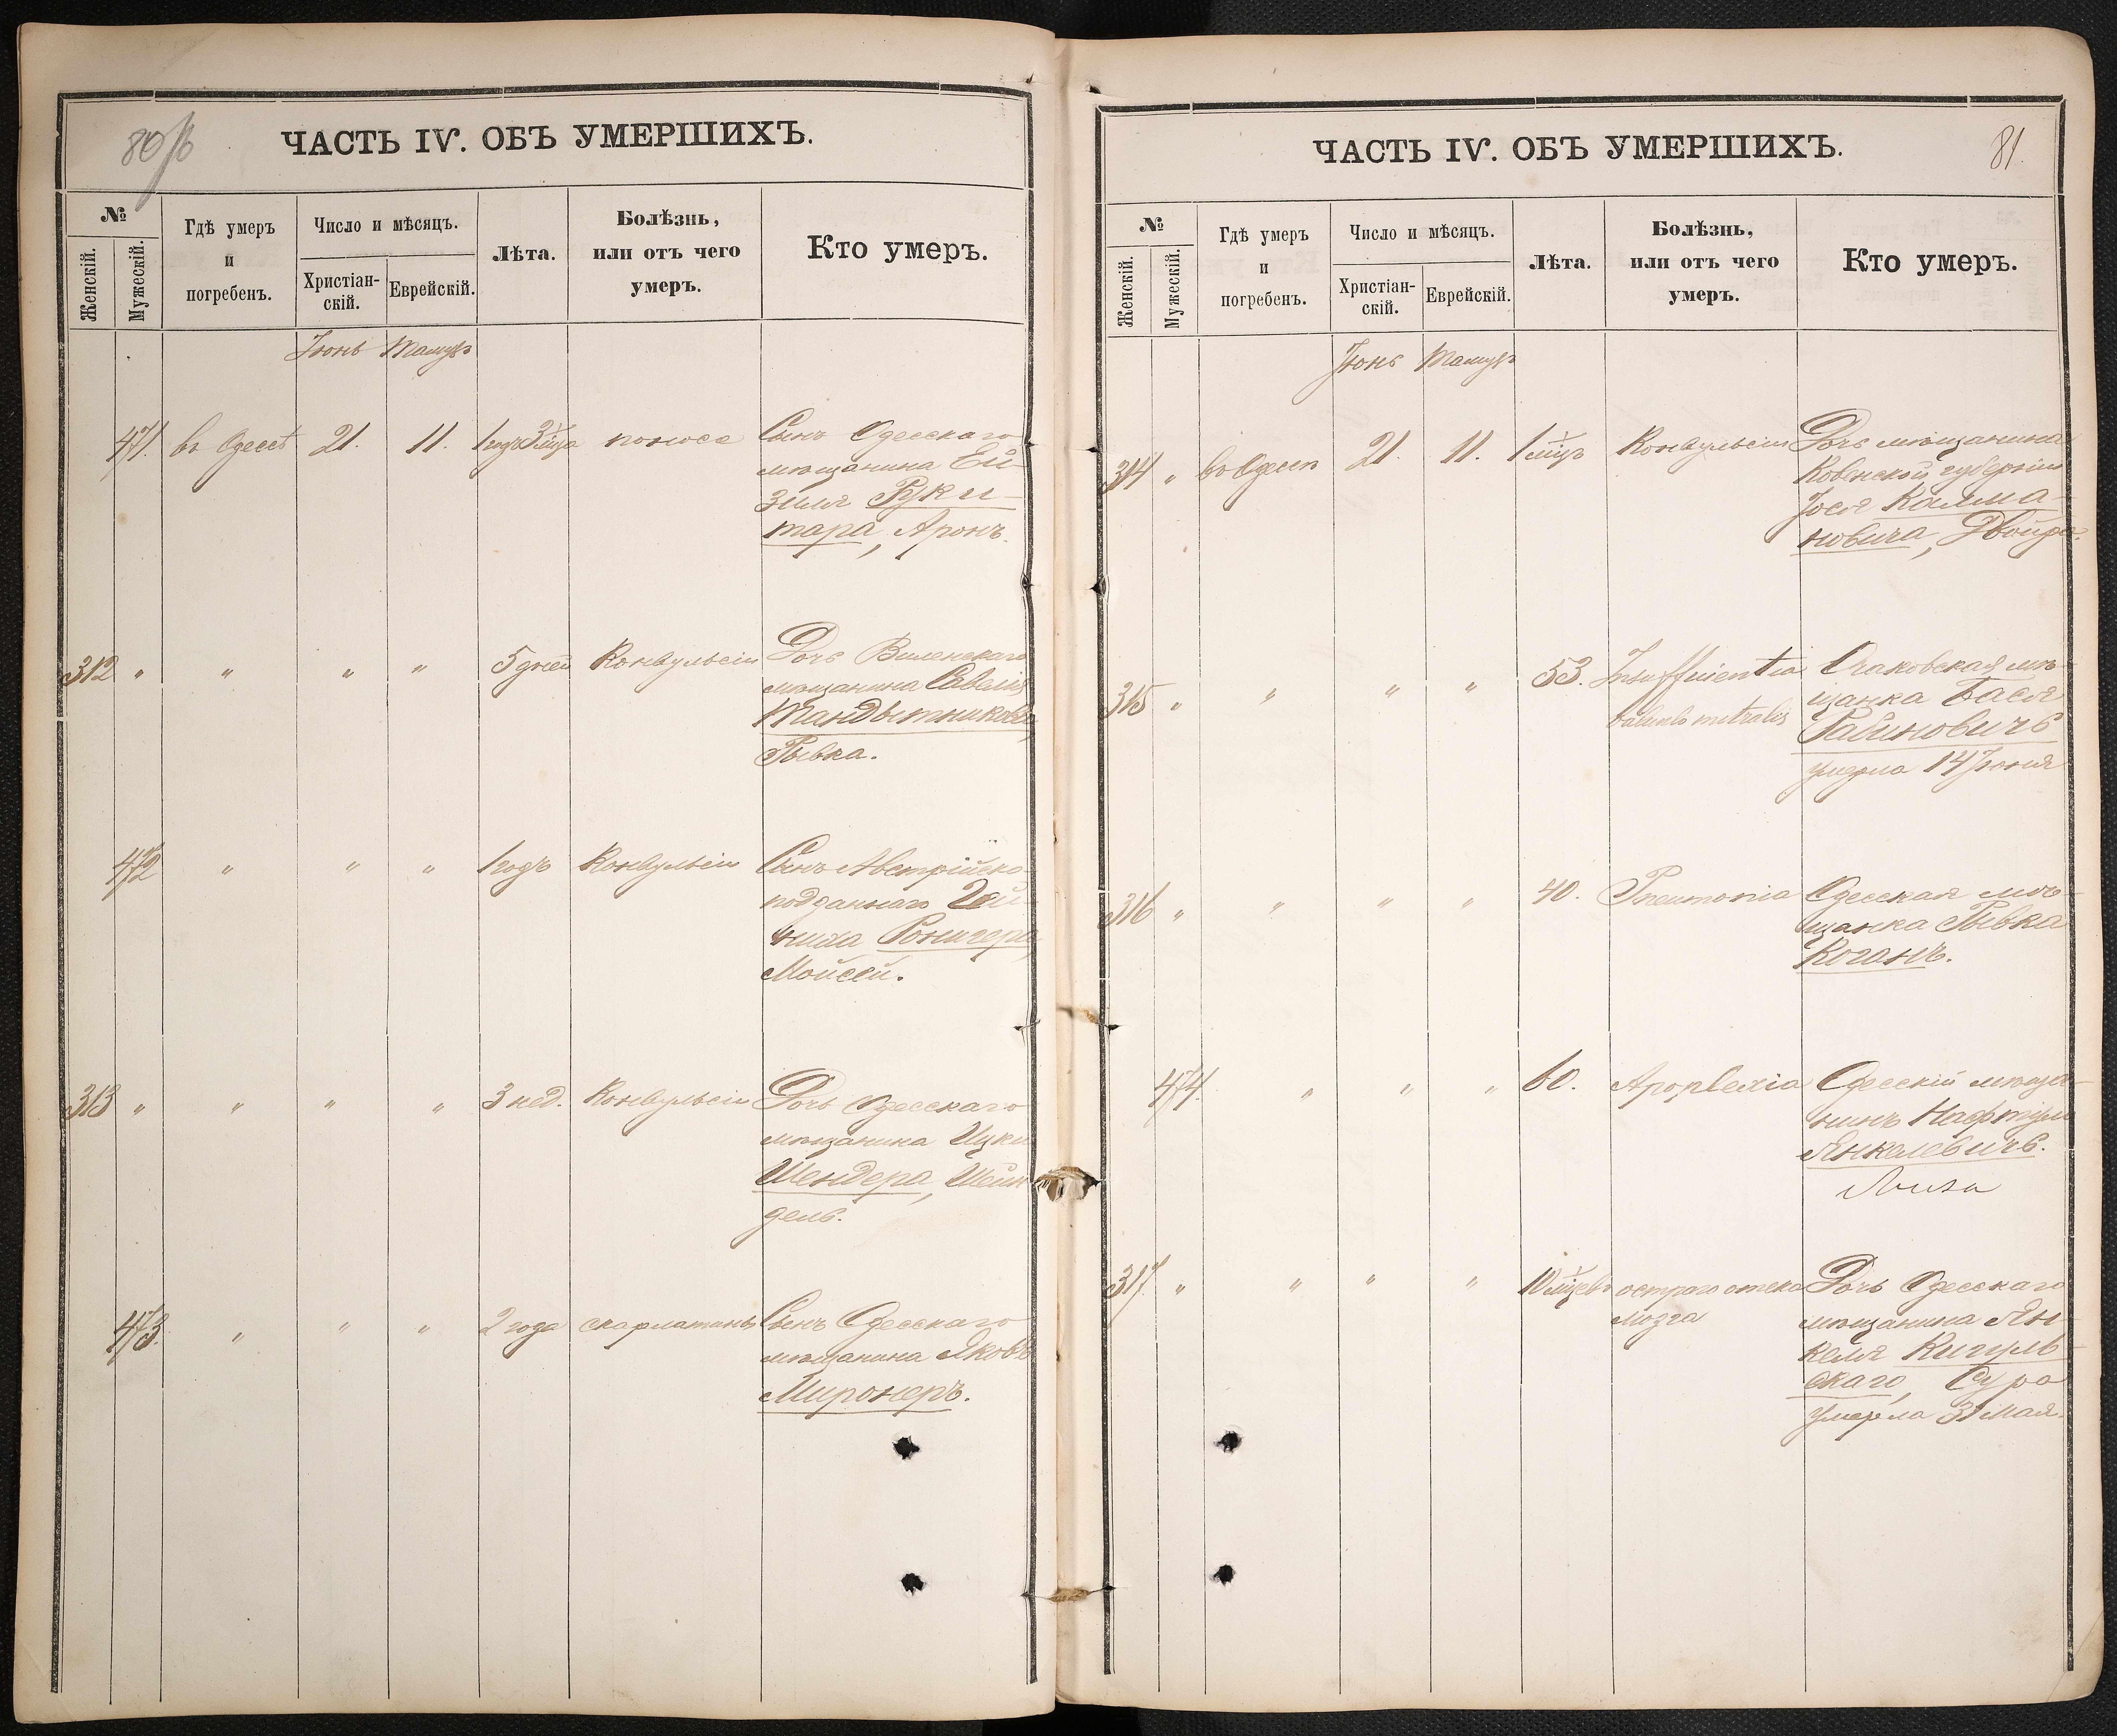 80/б
ЧАСТЬ IV. ОБЪ УМЕРШИХЪ.
№
Женскій.
Мужескій.
Гдѣ умеръ
и
погребенъ.
Число и мѣсяцъ.
Христіан-
скій.
Еврейскій.
Лѣта.
Болѣзнь,
или отъ чего
умеръ.
Кто умеръ.
Іюнь Тамузъ
471. въ Одессѣ 21. 11. 1 годъ 3 м̆ца поноса Сынъ Одесскаго
мѣщанина Ей-
зиля Руки-
тара, Аронъ.
312 " " " " 5 дней Конвульсіи Дочь Виленскаго
мѣщанина Савелія
Тандытникова,
Рывка.
472 " " " 1 годъ Конвульсіи Сынъ Австрійско-
подданнаго
Ронигера,
Мойсей.
313 " " " " 3 нед. Конвульсіи Дочь Одесскаго
мѣщанина Ицки
Шендера, Шейн
дель.
473. " " " 2 года скарлатинъ Сынъ Одесскаго
мѣщанина Яковъ
Миронеръ.
81.
ЧАСТЬ IV. ОБЪ УМЕРШИХЪ.
№
Женскій.
Мужескій.
Гдѣ умеръ
и
погребенъ.
Число и мѣсяцъ.
Христіан-
скій.
Еврейскій.
Лѣта.
Болѣзнь,
или отъ чего
умеръ.
Кто умеръ.
Іюнь Тамузъ
314 " въ Одессѣ 21. 11. 1 м̆цъ Конвульсіи Дочь мѣщанина
Ковенской губерніи
Іося Калма-
новича, Двойра.
315 " " " " 53. Insufficientia Очаковская мѣ-
valvulo mitralis щанка Бася
Рабиновичъ
умерла 14 Іюня
316 " " " " 40. Pneumonia Одесская мѣ-
щанка Рывка
Коганъ.
474. " " " 60. Apoplexia Одесскій мѣща-
нинъ Нафтула
Янкелевичъ.
317. " " " " 10 м̆цевъ остраго отека Дочь Одесскаго
мозга мѣщанина Ян-
келя Кигуль-
скаго, Сура
умерла 31 Мая.